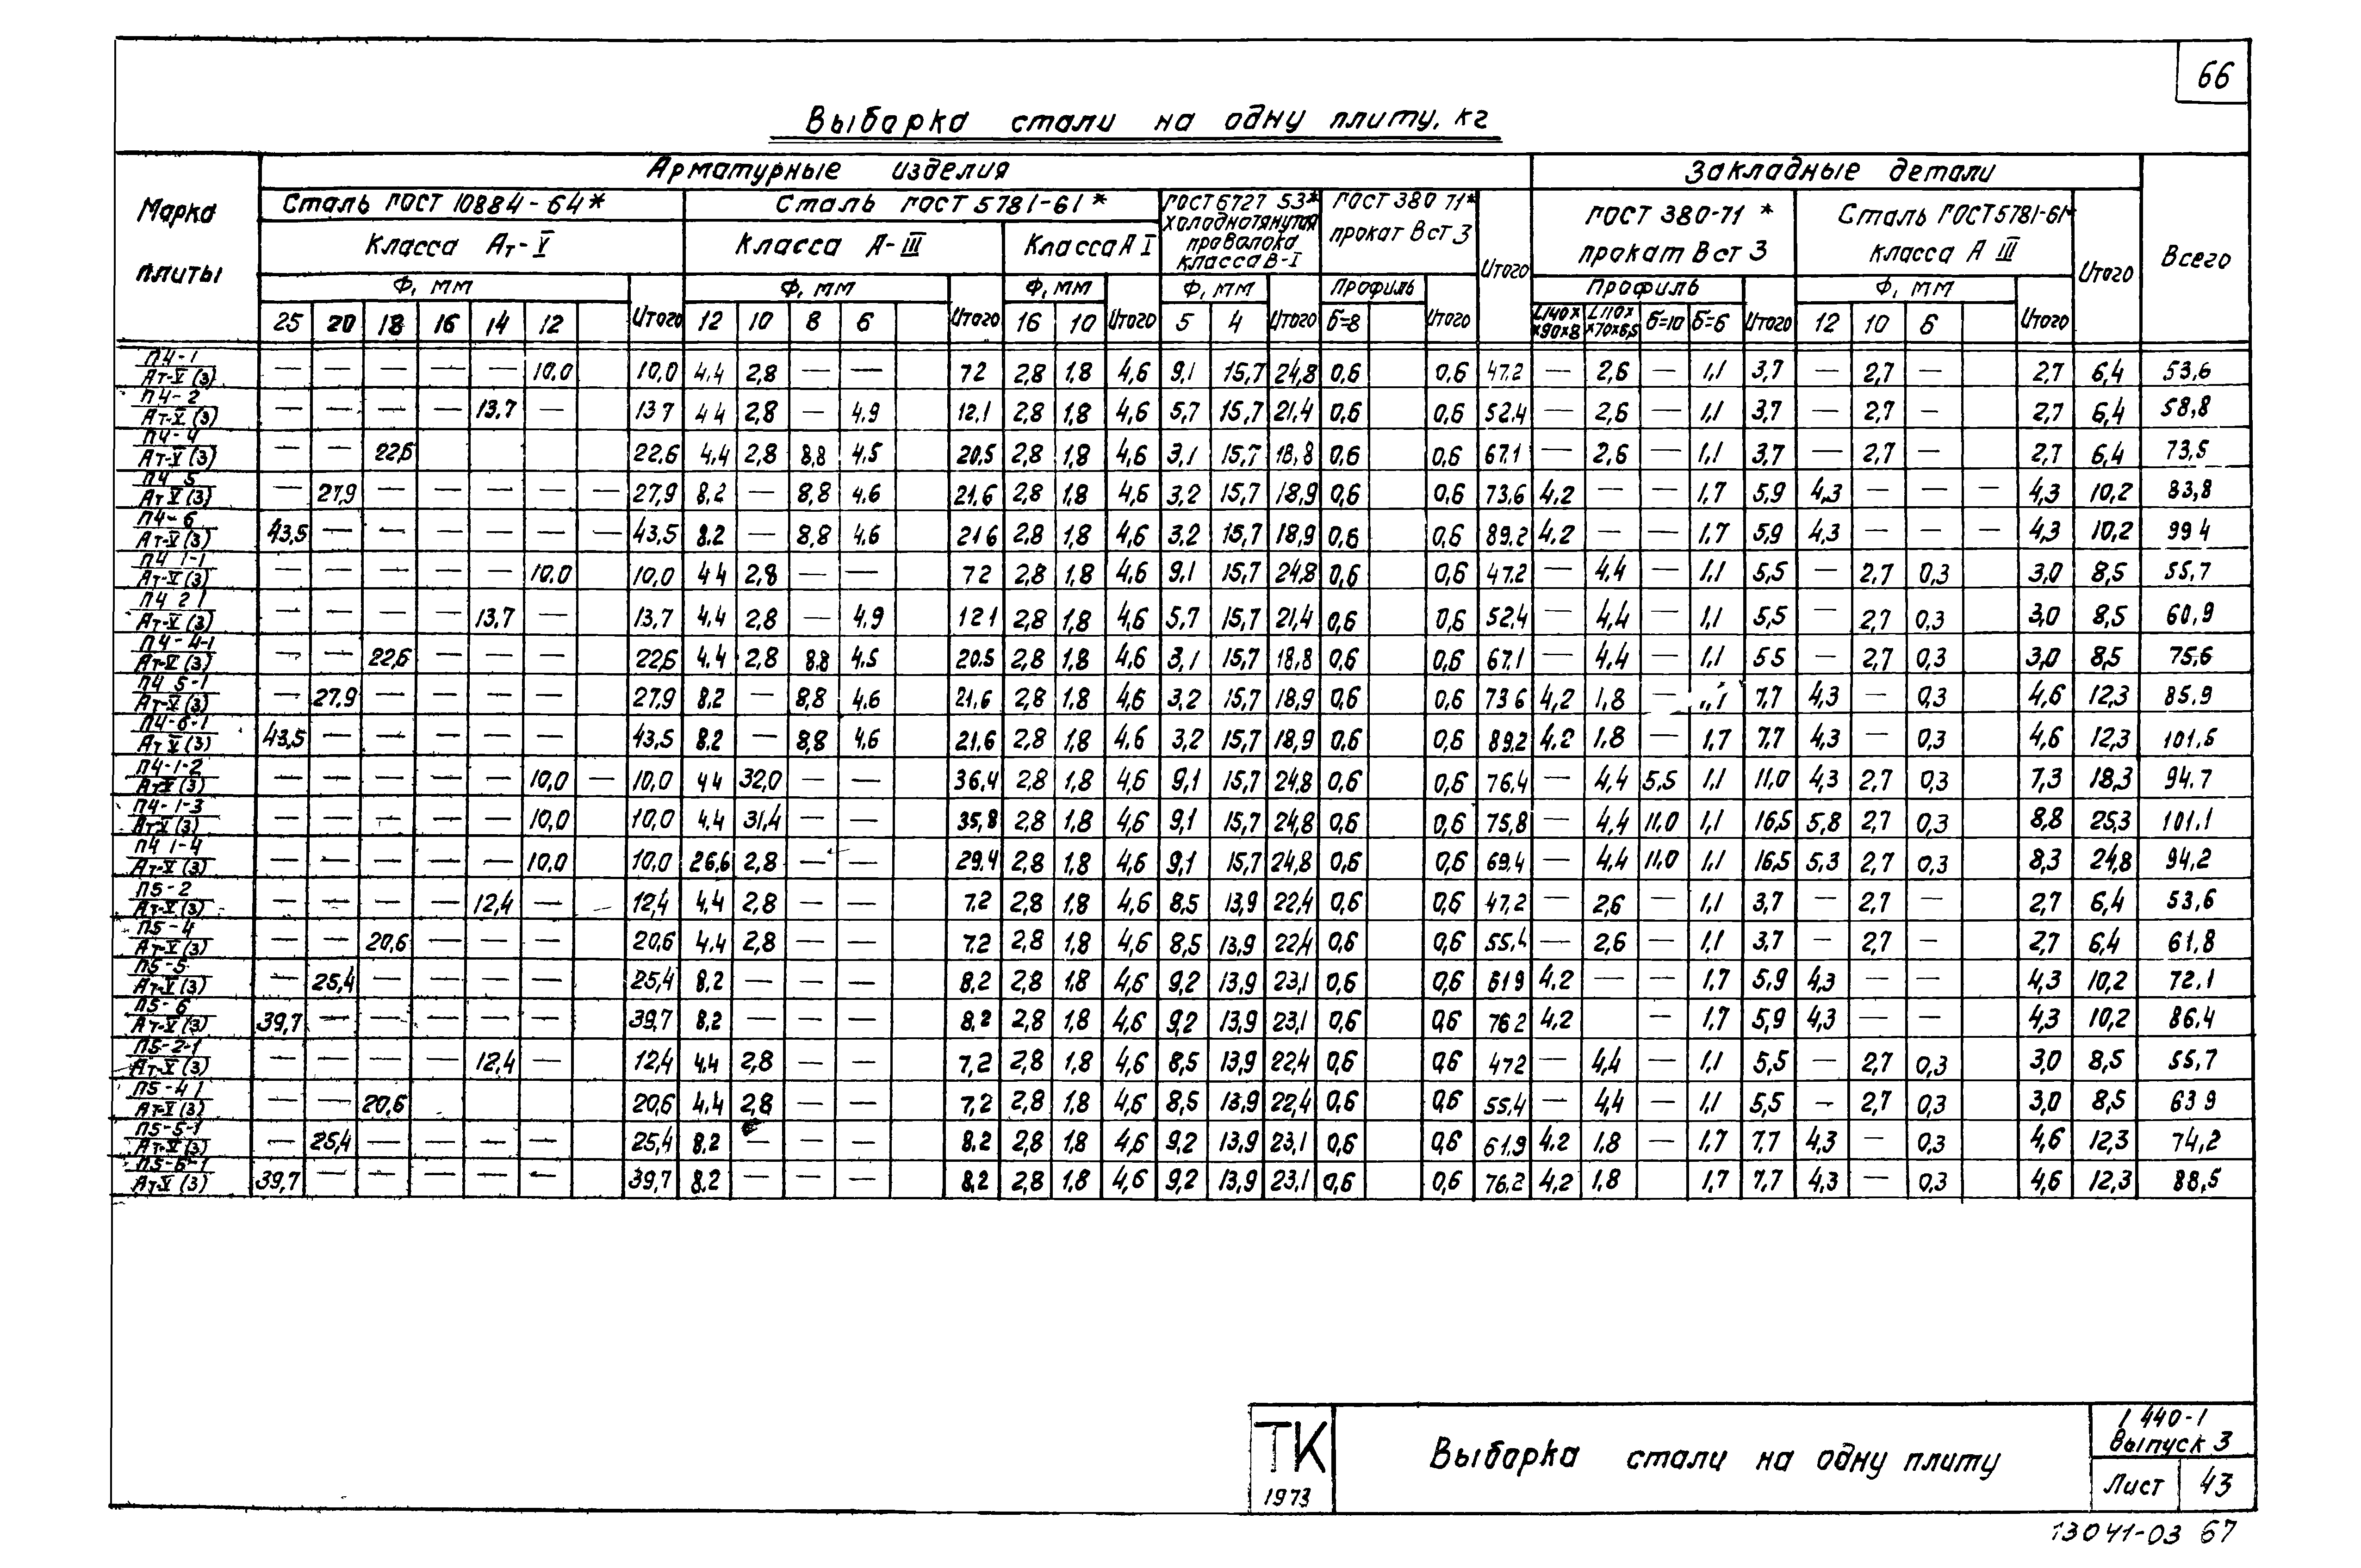 66
Выборка стали на одну плиту, кг
Марка плиты
Арматурные изделия
Закладные детали
Всего
Сталь ГОСТ 10884-64*
Сталь ГОСТ 5781-61*
ГОСТ 6727 53* холоднотянутая проволока класса В-I
ГОСТ 380 71* прокат В ст 3
Итого
ГОСТ 380-71* прокат В ст 3
Сталь ГОСТ 5781-61* класса А III
Итого
Класса Ат-V
Класса А-III
Класса А I
Ф, мм Итого Ф, мм Итого Ф, мм Итого Ф, мм Итого Профиль Итого Профиль Итого Ф, мм Итого
25 20 18 16 14 12 12 10 8 6 16 10 5 4 б=8 L140х х90х8 L110х х70х6,5 б=10 б=6 12 10 6
П4-1 Ат-V (3) — — — — — 10,0 10,0 4.4 2,8 — — 7 2 2,8 1,8 4,6 9,1 15,7 24,8 0,6 0,6 47.2 — 2,6 — 1,1 3,7 — 2,7 — 2,7 6,4 53,6
П4-2 Ат-V (3) — — — — 13.7 — 13 7 4 4 2,8 — 4.9 12.1 2,8 1,8 4,6 5,7 15,7 21,4 0,6 0,6 52.4 — 2,6 — 1,1 3,7 — 2,7 — 2,7 6,4 58,8
П4-4 Ат-V (3) — — 22,6 22,6 4,4 2,8 8,8 4.5 20,5 2,8 1,8 4,6 3,1 15,7 18,8 0,6 0,6 67.1 — 2,6 — 1,1 3,7 — 2,7 — 2,7 6,4 73,5
П4 5 Ат V (3) — 27,9 — — — — — 27,9 8.2 — 8,8 4.6 21.6 2,8 1,8 4,6 3,2 15,7 18,9 0,6 0,6 73.6 4.2 — — 1,7 5,9 4,3 — — — 4,3 10,2 83,8
П4-6 Ат-V (3) 43,5 — — — — — — 43,5 8.2 — 8,8 4.6 21 6 2,8 1,8 4,6 3,2 15,7 18,9 0,6 0,6 89.2 4.2 — — 1,7 5,9 4,3 — — — 4,3 10,2 99 4
П4 1-1 Ат-V (3) — — — — — 10,0 10,0 4 4 2,8 — — 7 2 2,8 1,8 4,6 9,1 15,7 24,8 0,6 0,6 47.2 — 4,4 — 1,1 5,5 — 2,7 0,3 3,0 8,5 55,7
П4 2 1 Ат-V (3) — — — — 13,7 — 13,7 4,4 2,8 — 4,9 12 1 2,8 1,8 4,6 5,7 15,7 21,4 0,6 0,6 52,4 — 4,4 — 1,1 5,5 — 2,7 0,3 3,0 8,5 60,9
П4-4-1 Ат-V (3) — — 22,6 — — — 22,6 4.4 2,8 8.8 4.5 20.5 2,8 1,8 4,6 3,1 15,7 18,8 0,6 0,6 67.1 — 4,4 — 1,1 5 5 — 2,7 0,3 3,0 8,5 75,6
П4 5-1 Ат-V (3) — 27.9 — — — — 27.9 8.2 — 8,8 4.6 21.6 2,8 1,8 4,6 3,2 15,7 18,9 0,6 0,6 73 6 4,2 1,8 — 7,7 4,3 — 0,3 4,6 12,3 85.9
П4-6-1 Ат V (3) 43,5 — — — — — 43,5 8.2 — 8,8 4,6 21.6 2,8 1,8 4.6 3,2 15,7 18,9 0,6 0,6 89,2 4.2 1.8 — 1,7 7,7 4,3 — 0,3 4,6 12,3 101.5
П4-1-2 Ат-V (3) — — — — — 10,0 — 10,0 4 4 32,0 — — 36,4 2,8 1,8 4,6 9,1 15,7 24,8 0,6 0,6 76,4 — 4,4 5,5 1,1 11,0 4,3 2,7 0,3 7,3 18,3 94.7
П4-1-3 Ат-V (3) — — — — — 10,0 10,0 4.4 31,4 — — 35,8 2,8 1,8 4,6 9,1 15,7 24,8 0,6 0,6 75,8 — 4,4 11,0 1,1 16,5 5,8 2,7 0,3 8,8 25,3 101.1
П4 1-4 Ат-V (3) — — — — — 10,0 10,0 26,6 2,8 — — 29.4 2,8 1,8 4,6 9,1 15,7 24,8 0,6 0,6 69,4 — 4,4 11,0 1,1 16,5 5,3 2,7 0,3 8,3 24,8 94,2
П5-2 Ат-V (3) — — — — 12,4 — 12,4 4,4 2,8 — — 7.2 2,8 1,8 4,6 8,5 13,9 22,4 0,6 0,6 47.2 — 2,6 — 1,1 3,7 — 2,7 — 2,7 6,4 53,6
П5-4 Ат-V (3) — — 20,6 — — — 20,6 4.4 2,8 — — 7.2 2,8 1,8 4,6 8,5 13,9 22,4 0,6 0,6 55.4 — 2,6 — 1,1 3,7 — 2,7 — 2,7 6,4 61,8
П5-5 Ат-V (3) — 25,4 — — — — 25,4 8,2 — — — 8.2 2,8 1,8 4,6 9,2 13,9 23,1 0,6 0,6 61 9 4.2 — — 1,7 5,9 4,3 — — 4,3 10,2 72.1
П5-6 Ат-V (3) 39,7 — — — — — 39,7 8.2 — — — 8.2 2,8 1,8 4,6 9,2 13,9 23,1 0,6 0,6 76 2 4.2 — 1,7 5,9 4,3 — — 4,3 10,2 86.4
П5-2-1 Ат-V (3) — — — — 12,4 — 12,4 4.4 2,8 — — 7,2 2,8 1,8 4,6 8,5 13,9 22,4 0,6 0,6 47 2 — 4,4 — 1,1 5,5 — 2,7 0,3 3,0 8,5 55,7
П5-4 1 Ат-V (3) — — 20,6 20,6 4.4 2,8 — — 7,2 2,8 1,8 4,6 8,5 13,9 22,4 0,6 0,6 55,4 — 4,4 — 1,1 5,5 — 2,7 0,3 3,0 8,5 63 9
П5-5-1 Ат-V (3) — 25,4 — — — — 25,4 8.2 — — — 8.2 2,8 1,8 4,6 9,2 13,9 23,1 0,6 0,6 61.9 4.2 1,8 — 1,7 7,7 4,3 — 0,3 4,6 12,3 74,2
П5-6-1 Ат-V (3) 39,7 — — — — — 39,7 8.2 — — — 8,2 2,8 1,8 4,6 9,2 13,9 23,1 0,6 0,6 76,2 4,2 1,8 1,7 7,7 4,3 — 0,3 4,6 12,3 88,5
ТК
1973
Выборка стали на одну плиту
1 440-1
Выпуск 3
Лист 43
13041-03 67